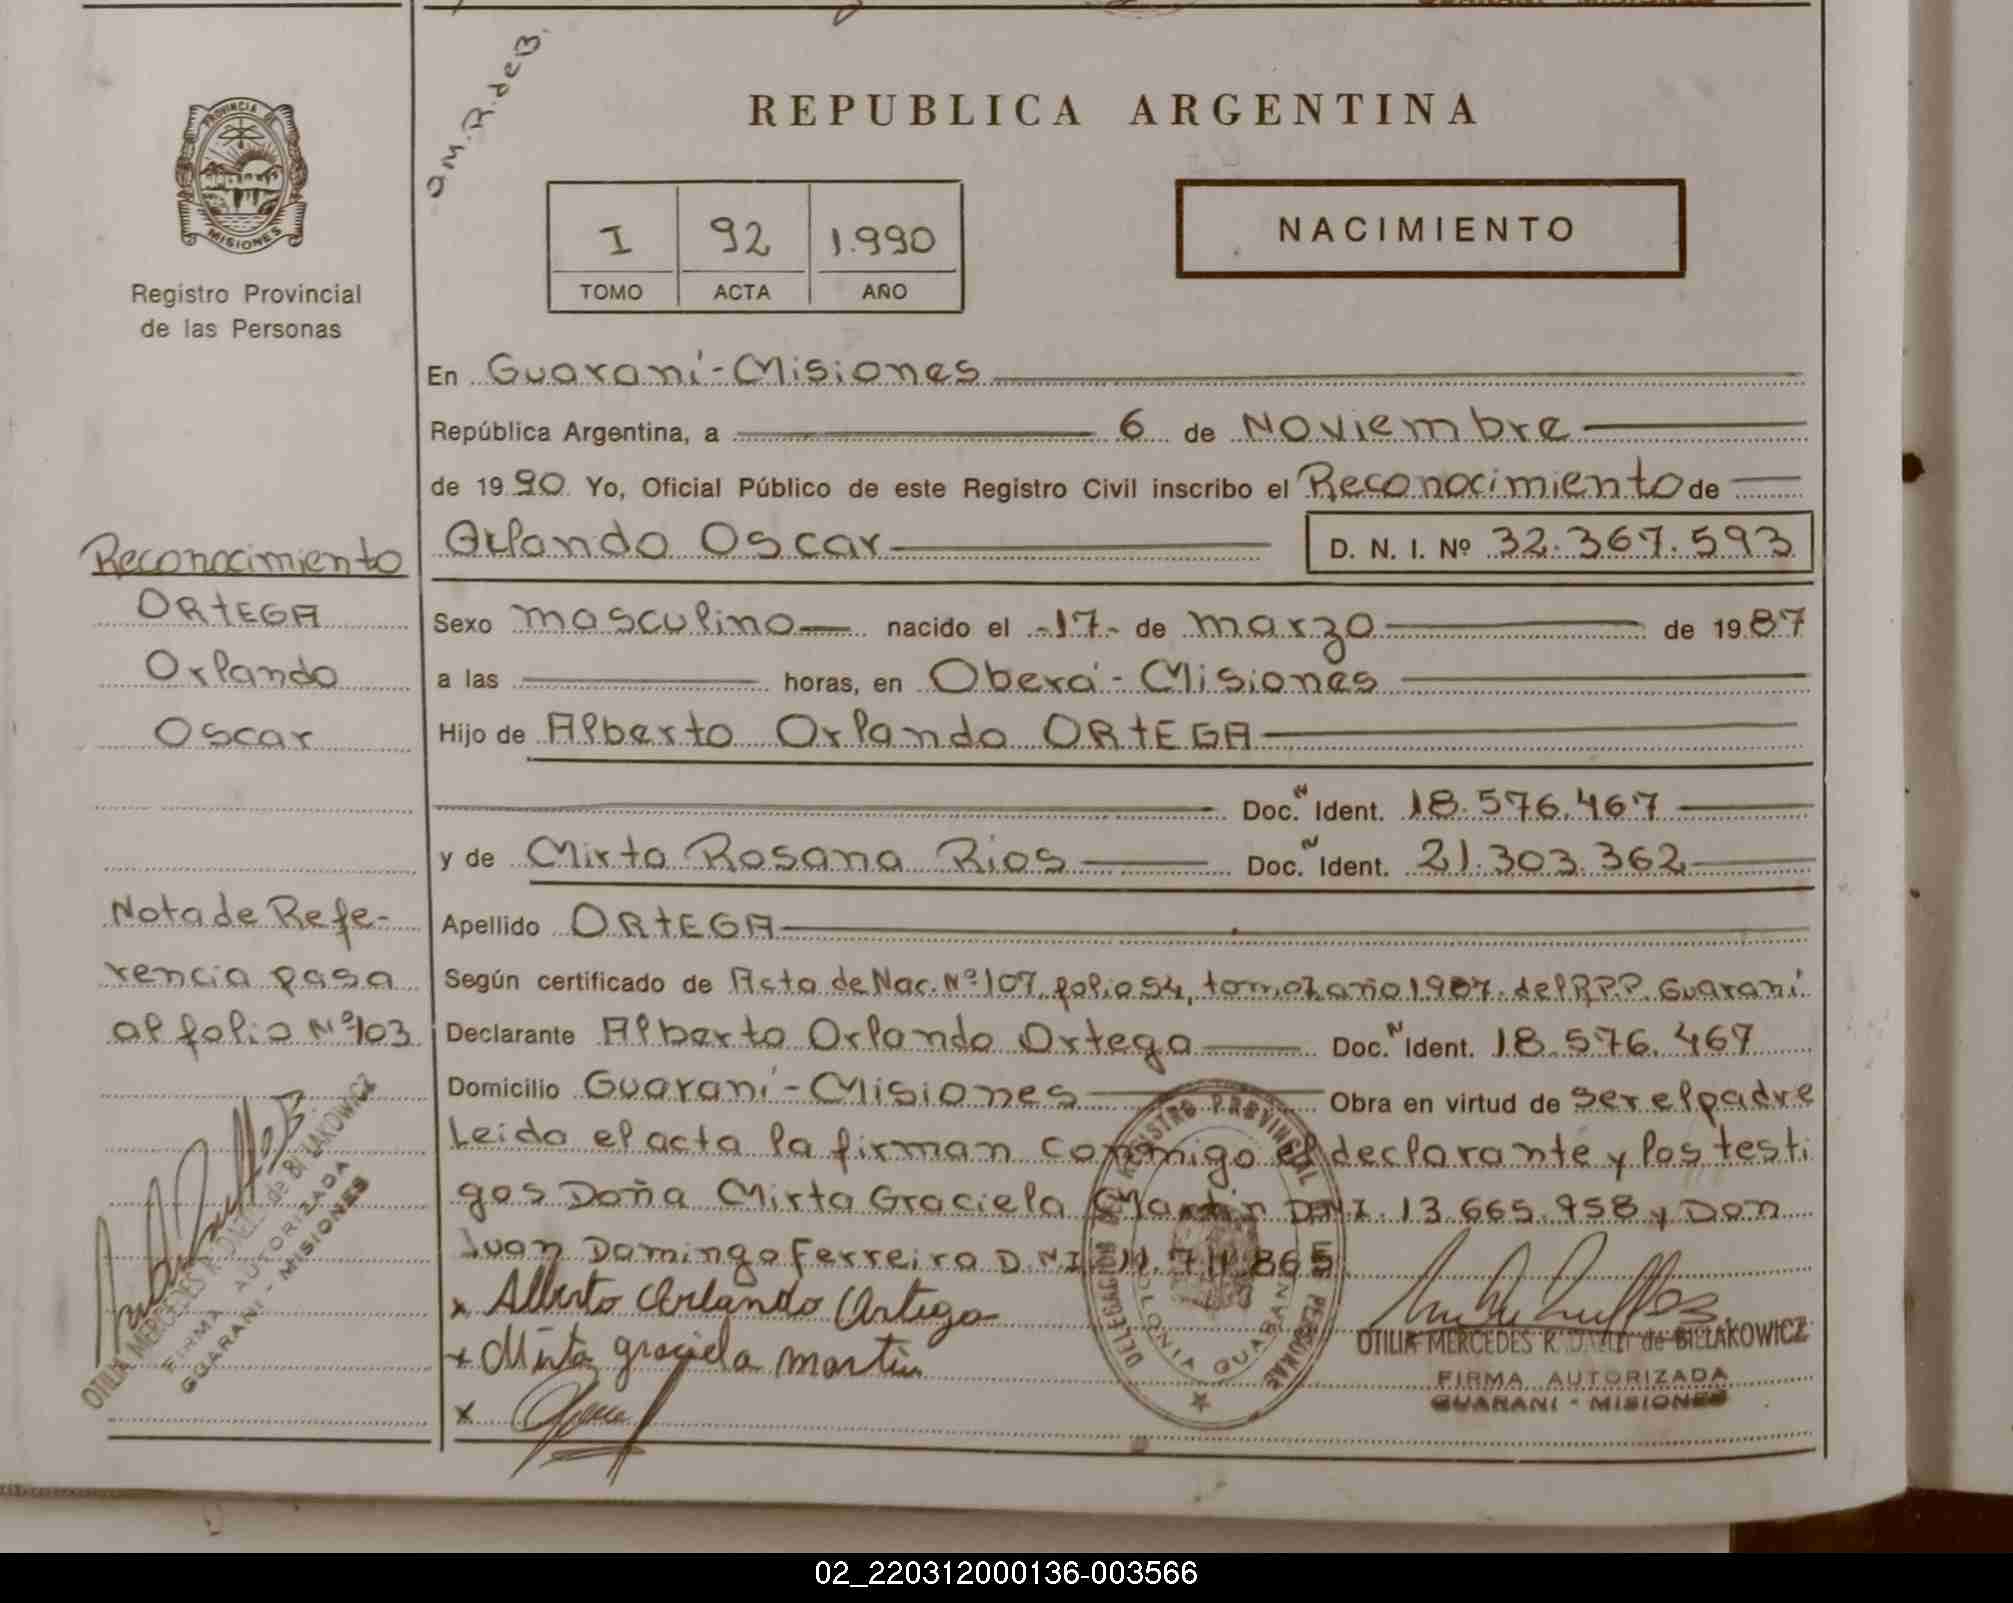 O.M.R.deB.
PROVINCIA DE
MISIONES
Registro Provincial
de las Personas
REPUBLICA ARGENTINA
I 92 1.990
TOMO ACTA AÑO
NACIMIENTO
En Guaraní-Misiones
República Argentina, a 6 de Noviembre
de 1990 Yo, Oficial Público de este Registro Civil inscribo el Reconocimiento de
Orlando Oscar D. N. I. Nº 32.367.593
Sexo masculino nacido el -17- de marzo de 1987
a las horas, en Oberá-Misiones
Hijo de Alberto Orlando ORtEGA
Doc.N Ident. 18.576.467
y de Mirta Rosana Rios Doc.N Ident. 21.303.362
Apellido ORtEGA
Según certificado de Acta de Nac. Nº107, folio 54, tomo I año 1987. del R.P.P. Guaraní
Declarante Alberto Orlando Ortega Doc.N Ident. 18.576.467
Domicilio Guaraní-Misiones Obra en virtud de ser el padre
Leido el acta la firman conmigo el declarante y los testi
gos Doña Mirta Graciela Martin DNI. 13.665.958 y Don
Juan Domingo Ferreira D.N.I. 11.711.865
x Alberto Orlando Ortega
x Mirta graciela martin
x
Reconocimiento
ORtEGA
Orlando
Oscar
Nota de Refe-
rencia pasa
al folio Nº103
OTILIA MERCEDES R. de BILAKOWICZ
FIRMA AUTORIZADA
GUARANI - MISIONES
DELEGACION DEL REGISTRO PROVINCIAL DE PERSONAS
COLONIA GUARANI
OTILIA MERCEDES R. de BILLAKOWICZ
FIRMA AUTORIZADA
GUARANI - MISIONES
02_220312000136-003566